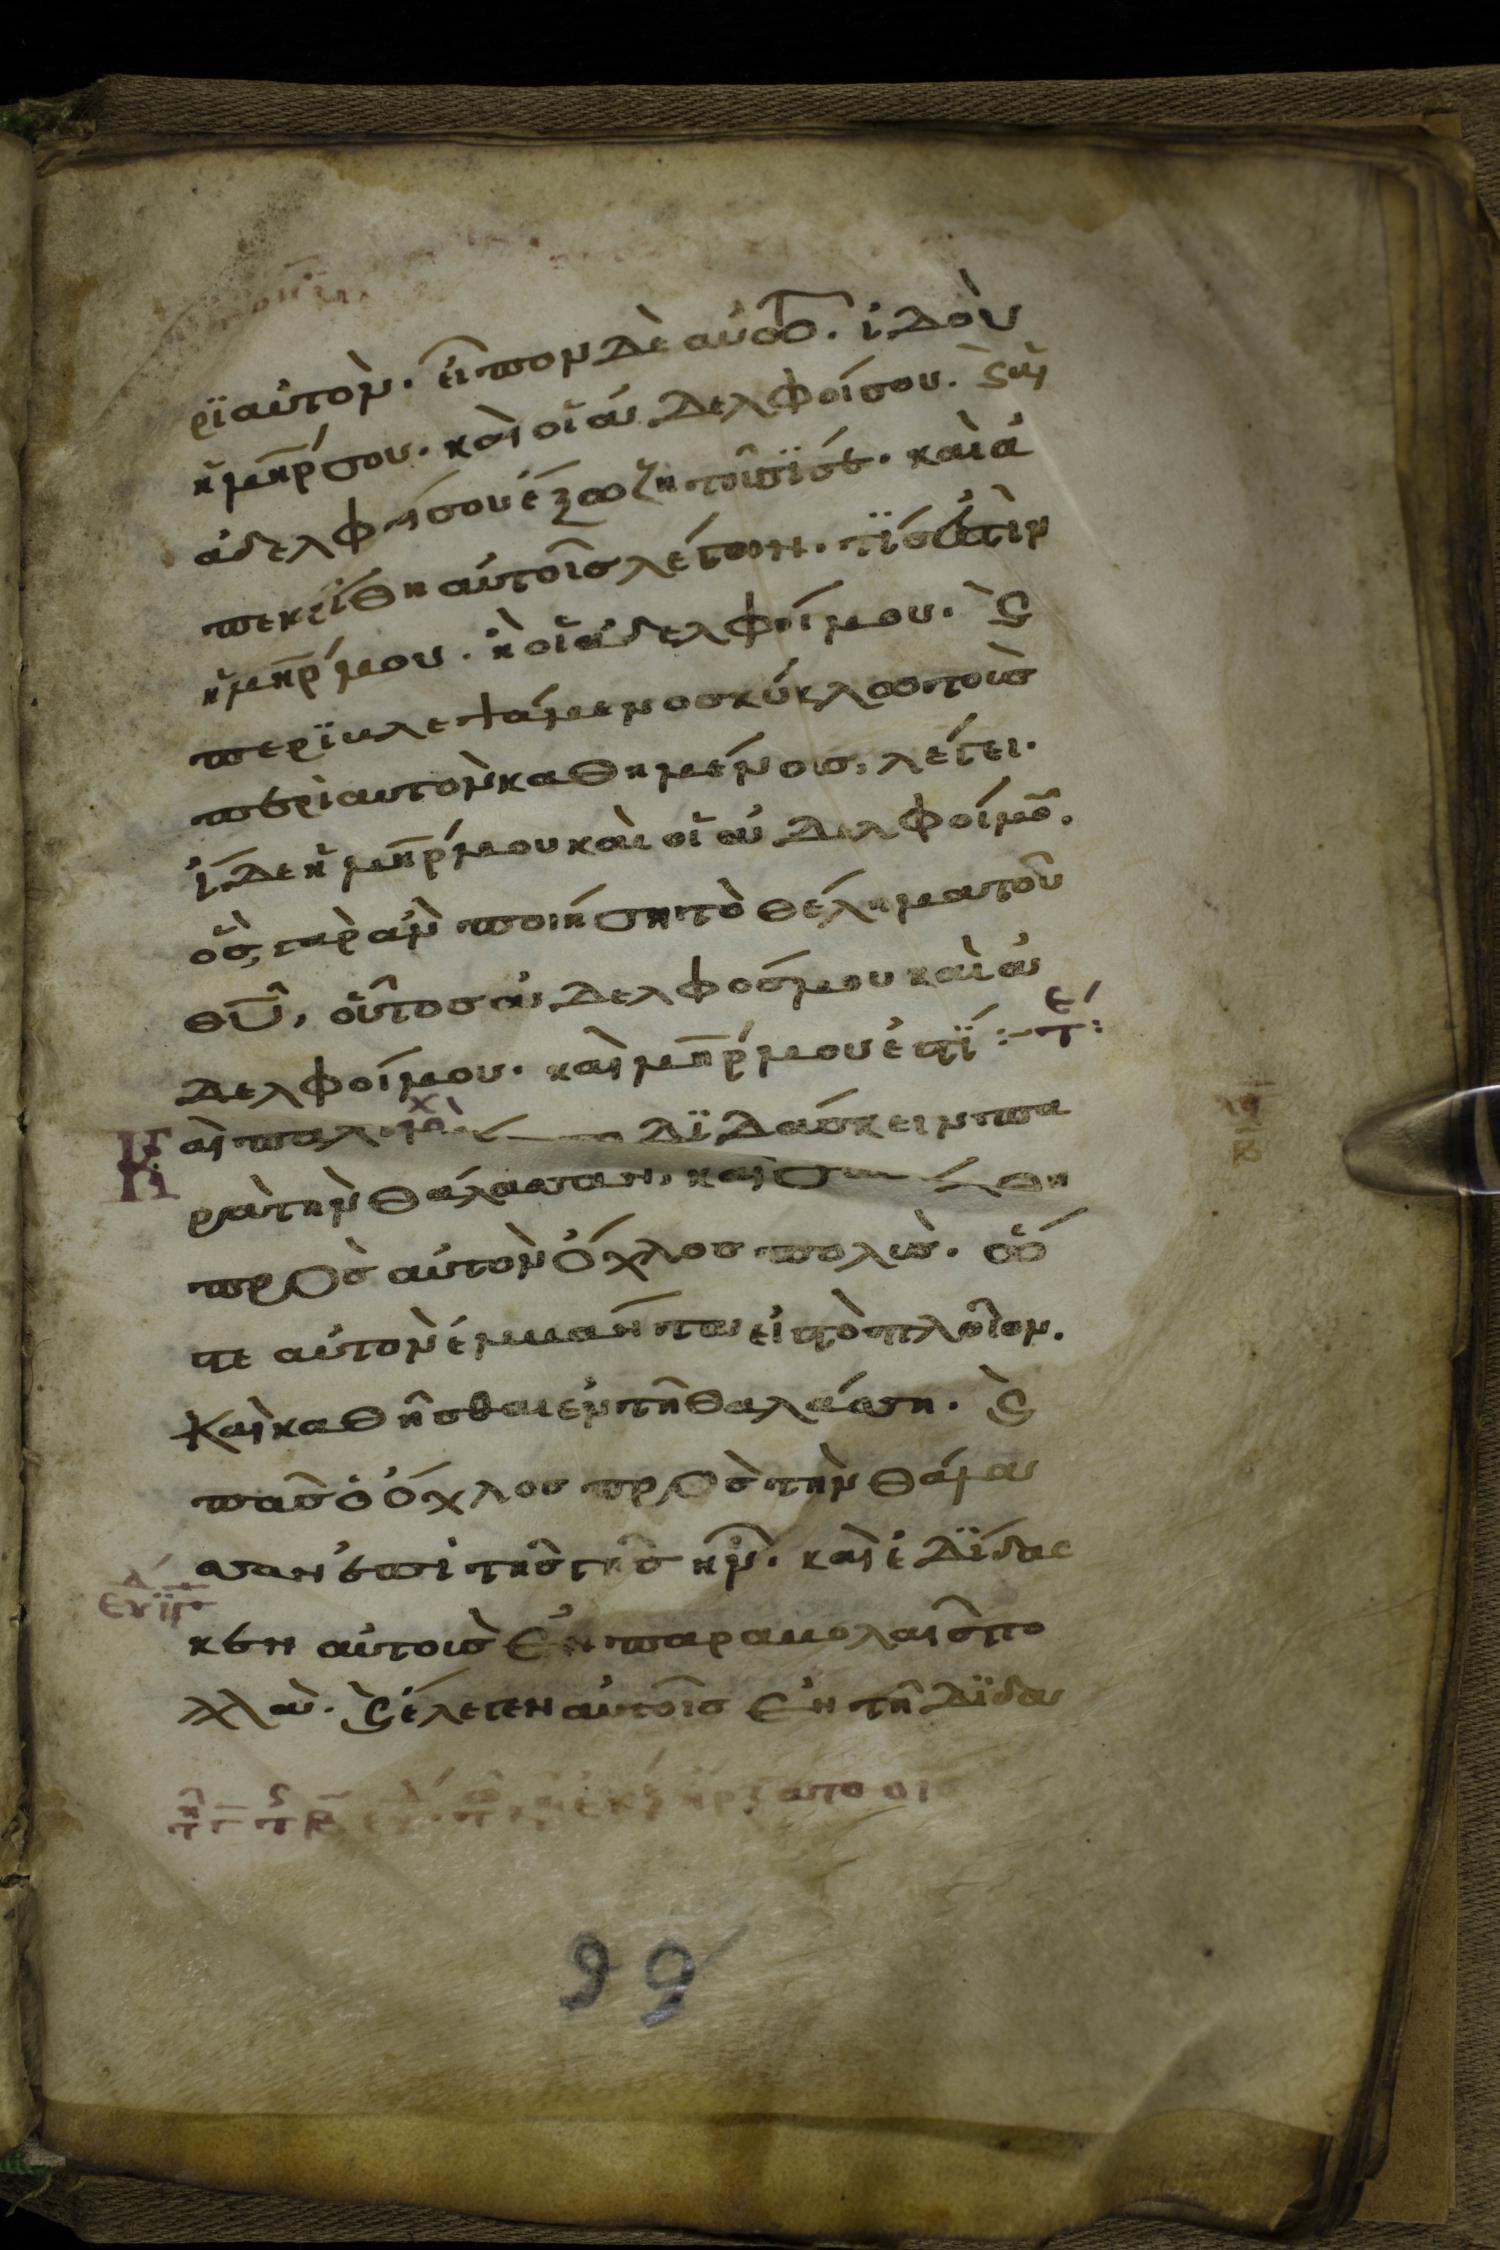 ρϊ αὐτὸν. εἶπον δὲ αὐτῶ. ἰδοὺ
ἡ μηρ σου. καὶ οἱ ἀδελφοί σου. ϛ αἱ
ἀδελφαί σου ἔξω ζητοῦσϊ σε. καὶ ἀ
πεκρίθη αὐτοῖσ λέγων. τϊσ ἐστὶν
ἡ μηρ μου. ἢ οἱ ἀδελφοί μου. ϛ
περϊβλεψάμενοσ κύκλω τοὺσ
περὶ αυτὸν καθημένουσ, λέγει.
ἴδε ἡ μηρ μου καὶ οἱ ἀδελφοί μου.
ὃσ γὰρ ἂν ποιήση τὸ θέλημα τοῦ
θυ, οὗτοσ ἀδελφόσ μου καὶ ἀ
δελφοί μου. καὶ μηρ μου ἐστϊ :-
Καὶ παλιν δϊδάσκειν πα
ρὰ τὴν θάλασσαν, καὶ συν
πρὸσ αὐτὸν ὄχλοσ πολὺσ. ὥσ
τε αὐτὸν ἐμβάντα εἰσ τὸ πλοῖον.
Καὶ καθῆσθαι ἐν τῆ θαλάσση. ϛ
πᾶσ ὁ ὄχλοσ πρὸσ τὴν θάλα
σσαν ἐπὶ τῆσ γῆσ ἦν. καὶ ἐδϊδασ
κεν αὐτοὺσ ἐν παραβολαῖσ πο
λλὰ. ϛ ἔλεγεν αὐτοῖσ ἐν τῆ δϊδα
99